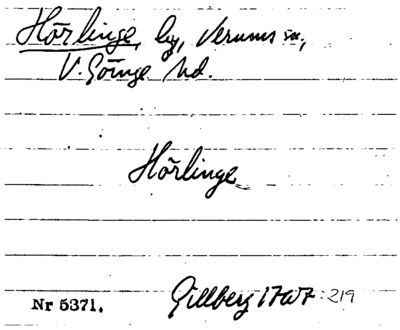 Hörlinge, by, Verums sn,
V. Göinge hd.
Hörlinge
Gillberg 1767: 219
Nr 5371.